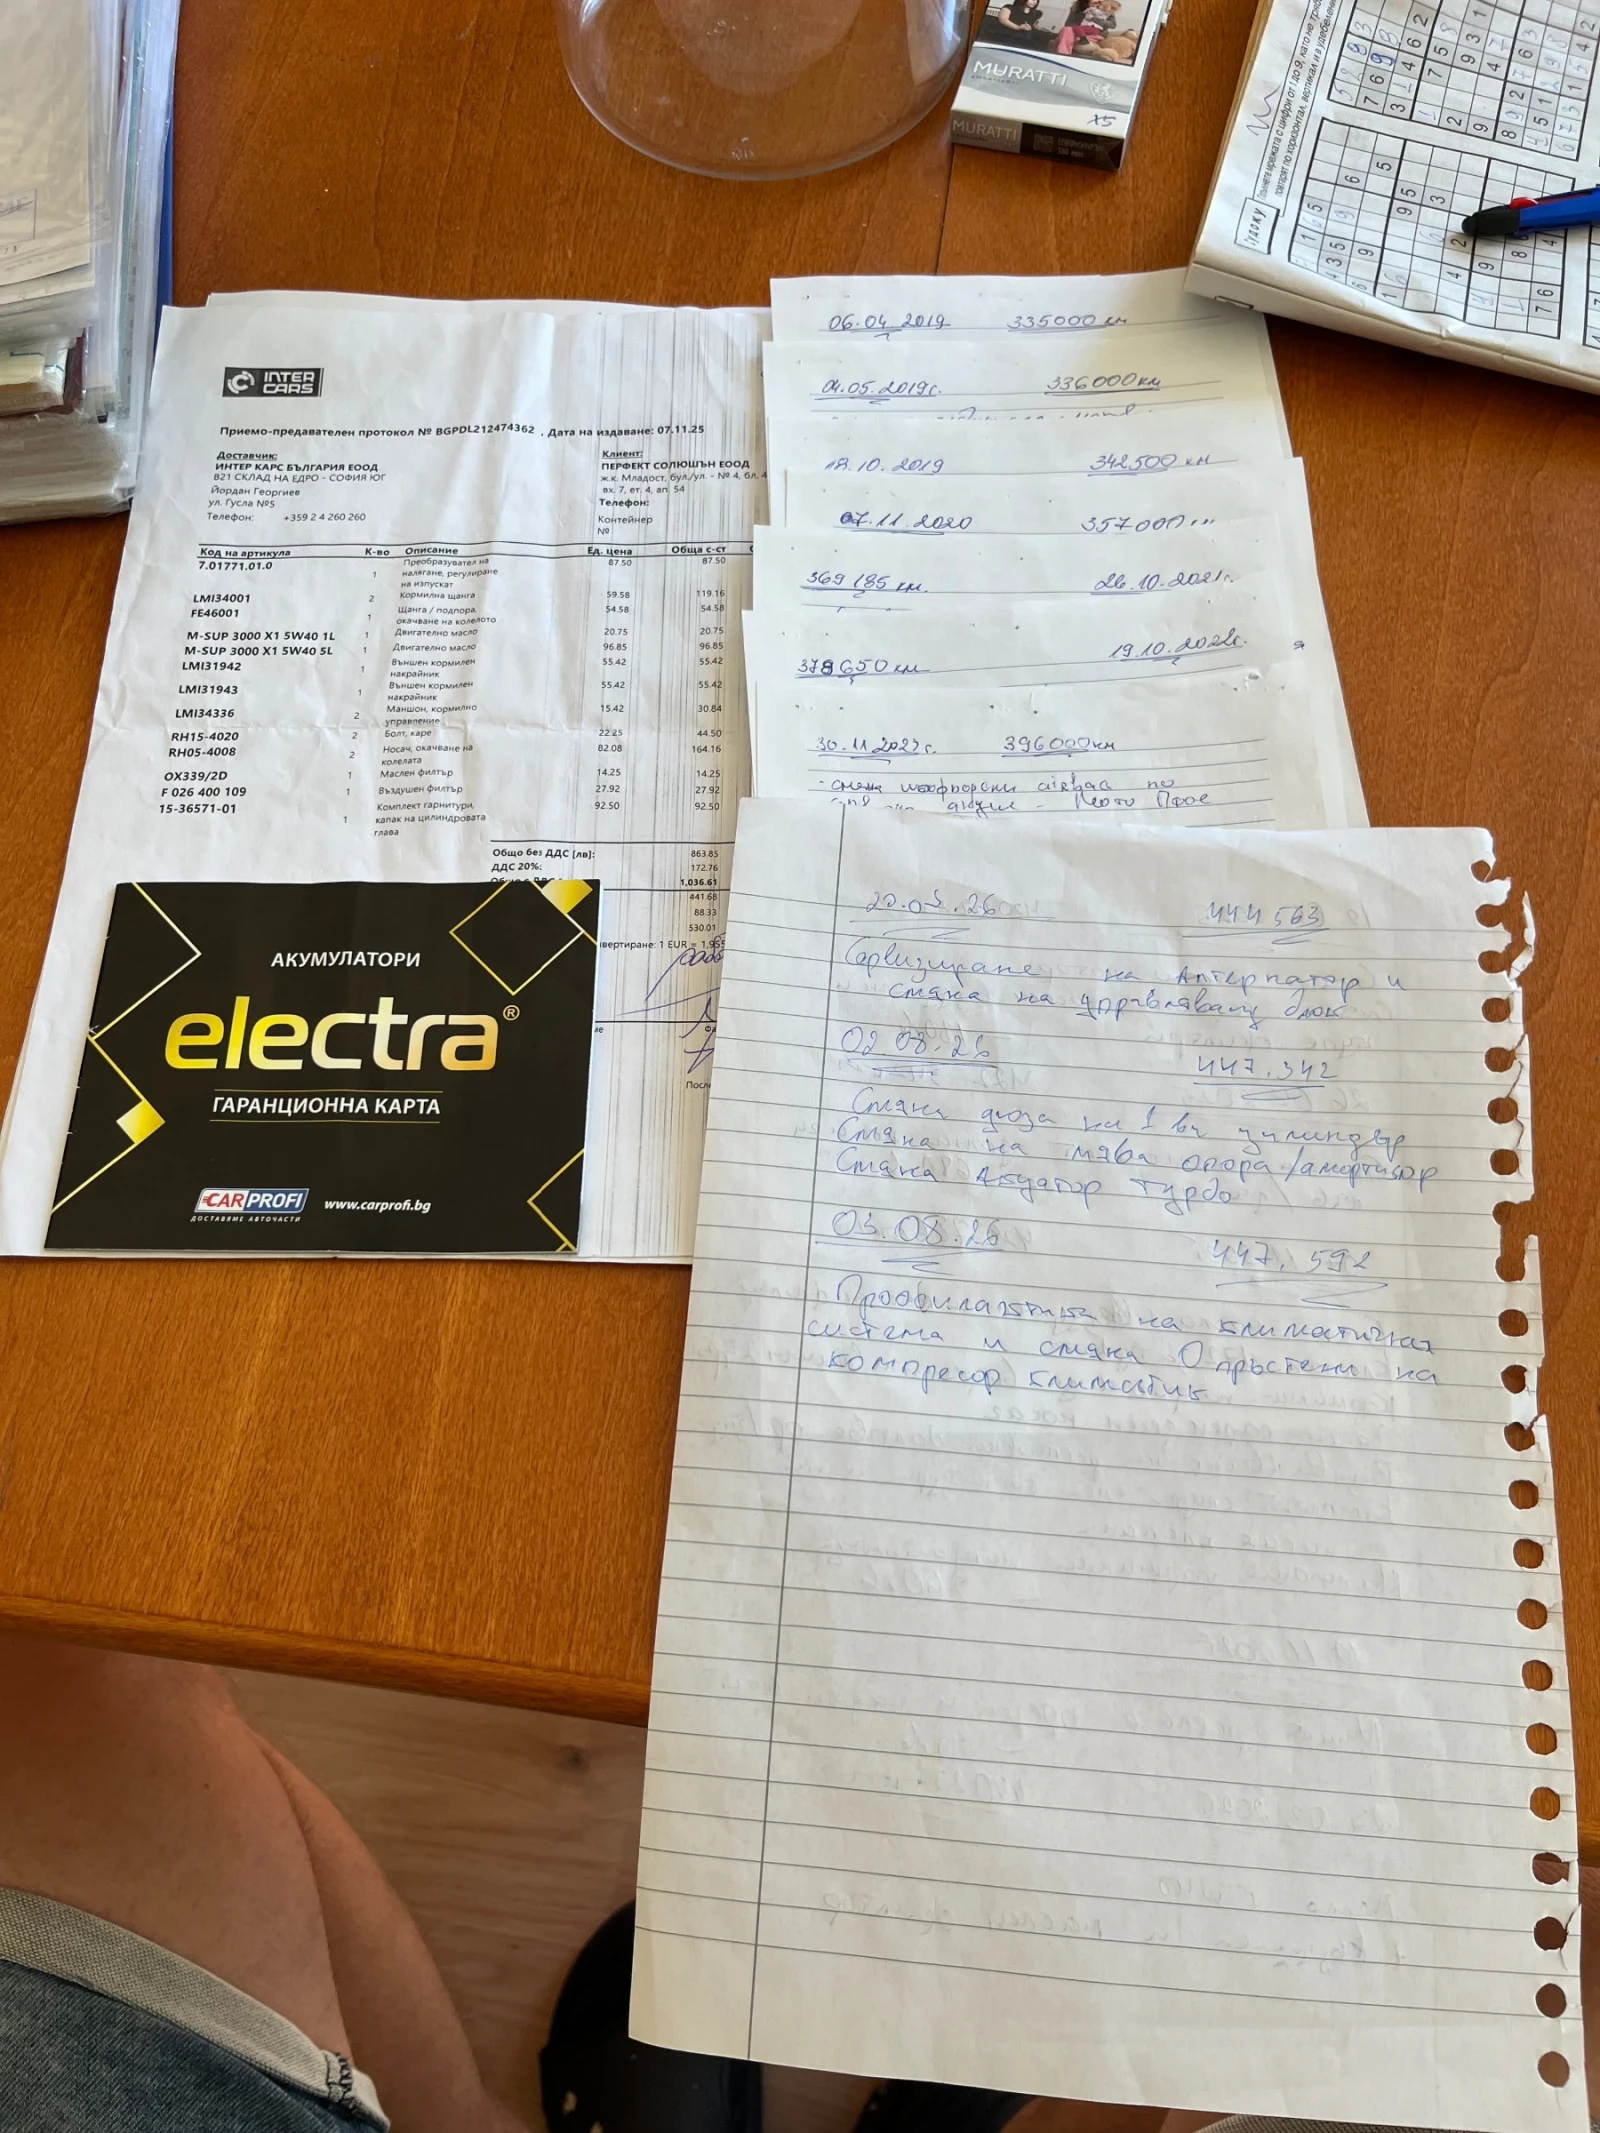 MURATTI
MURATTI
X5
Попълнете мрежата с цифри от 1 до 9, като не трябва
Судоку
INTER
CARS
Приемо-предавателен протокол № BGPDL212474362 , Дата на издаване: 07.11.25
Доставчик:
ИНТЕР КАРС БЪЛГАРИЯ ЕООД
B21 СКЛАД НА ЕДРО - СОФИЯ ЮГ
Йордан Георгиев
ул. Гусла №5
Телефон: +359 2 4 260 260
Клиент:
ПЕРФЕКТ СОЛЮШЪН ЕООД
ж.к. Младост, бул./ул. - № 4, бл. 4
вх. 7, ет. 4, ап. 54
Телефон:
Контейнер
№
Код на артикула К-во Описание Ед. цена Обща с-ст
7.01771.01.0 1 Преобразувател на 87.50 87.50
налягане, регулиране
на изпускат
LMI34001 2 Кормилна щанга 59.58 119.16
FE46001 1 Щанга / подпора, 54.58 54.58
окачване на колелото
M-SUP 3000 X1 5W40 1L 1 Двигателно масло 20.75 20.75
M-SUP 3000 X1 5W40 5L 1 Двигателно масло 96.85 96.85
LMI31942 1 Външен кормилен 55.42 55.42
накрайник
LMI31943 1 Външен кормилен 55.42 55.42
накрайник
LMI34336 2 Маншон, кормилно 15.42 30.84
управление
RH15-4020 2 Болт, каре 22.25 44.50
RH05-4008 2 Носач, окачване на 82.08 164.16
колелата
OX339/2D 1 Маслен филтър 14.25 14.25
F 026 400 109 1 Въздушен филтър 27.92 27.92
15-36571-01 1 Комплект гарнитури, 92.50 92.50
капак на цилиндровата
глава
Общо без ДДС [лв]: 863.85
ДДС 20%: 172.76
1,036.61
441.68
88.33
530.01
вертиране: 1 EUR = 1,955
АКУМУЛАТОРИ
electra®
ГАРАНЦИОННА КАРТА
CAR PROFI
ДОСТАВЯМЕ АВТОЧАСТИ
www.carprofi.bg
06.04.2019 335000 км
04.05.2019г. 336000км
18.10.2019 342500 км
07.11.2020 357000
369 185 км. 26.10.2021г.
378650 км 19.10.2022г.
30.11.2022г. 396000км
- смяна шофьорски по
444563
Сервизиране на Алтернатор и
смяна на управляващ блок
02.08.26 447.342
Смяна дюза на 1 ви цилиндър
Смяна на лява опора /амортисьор
Смяна Акуатор турбо
03.08.26 447.592
Профилактика на климатичная
система и смяна О пръстени на
компресор климатик